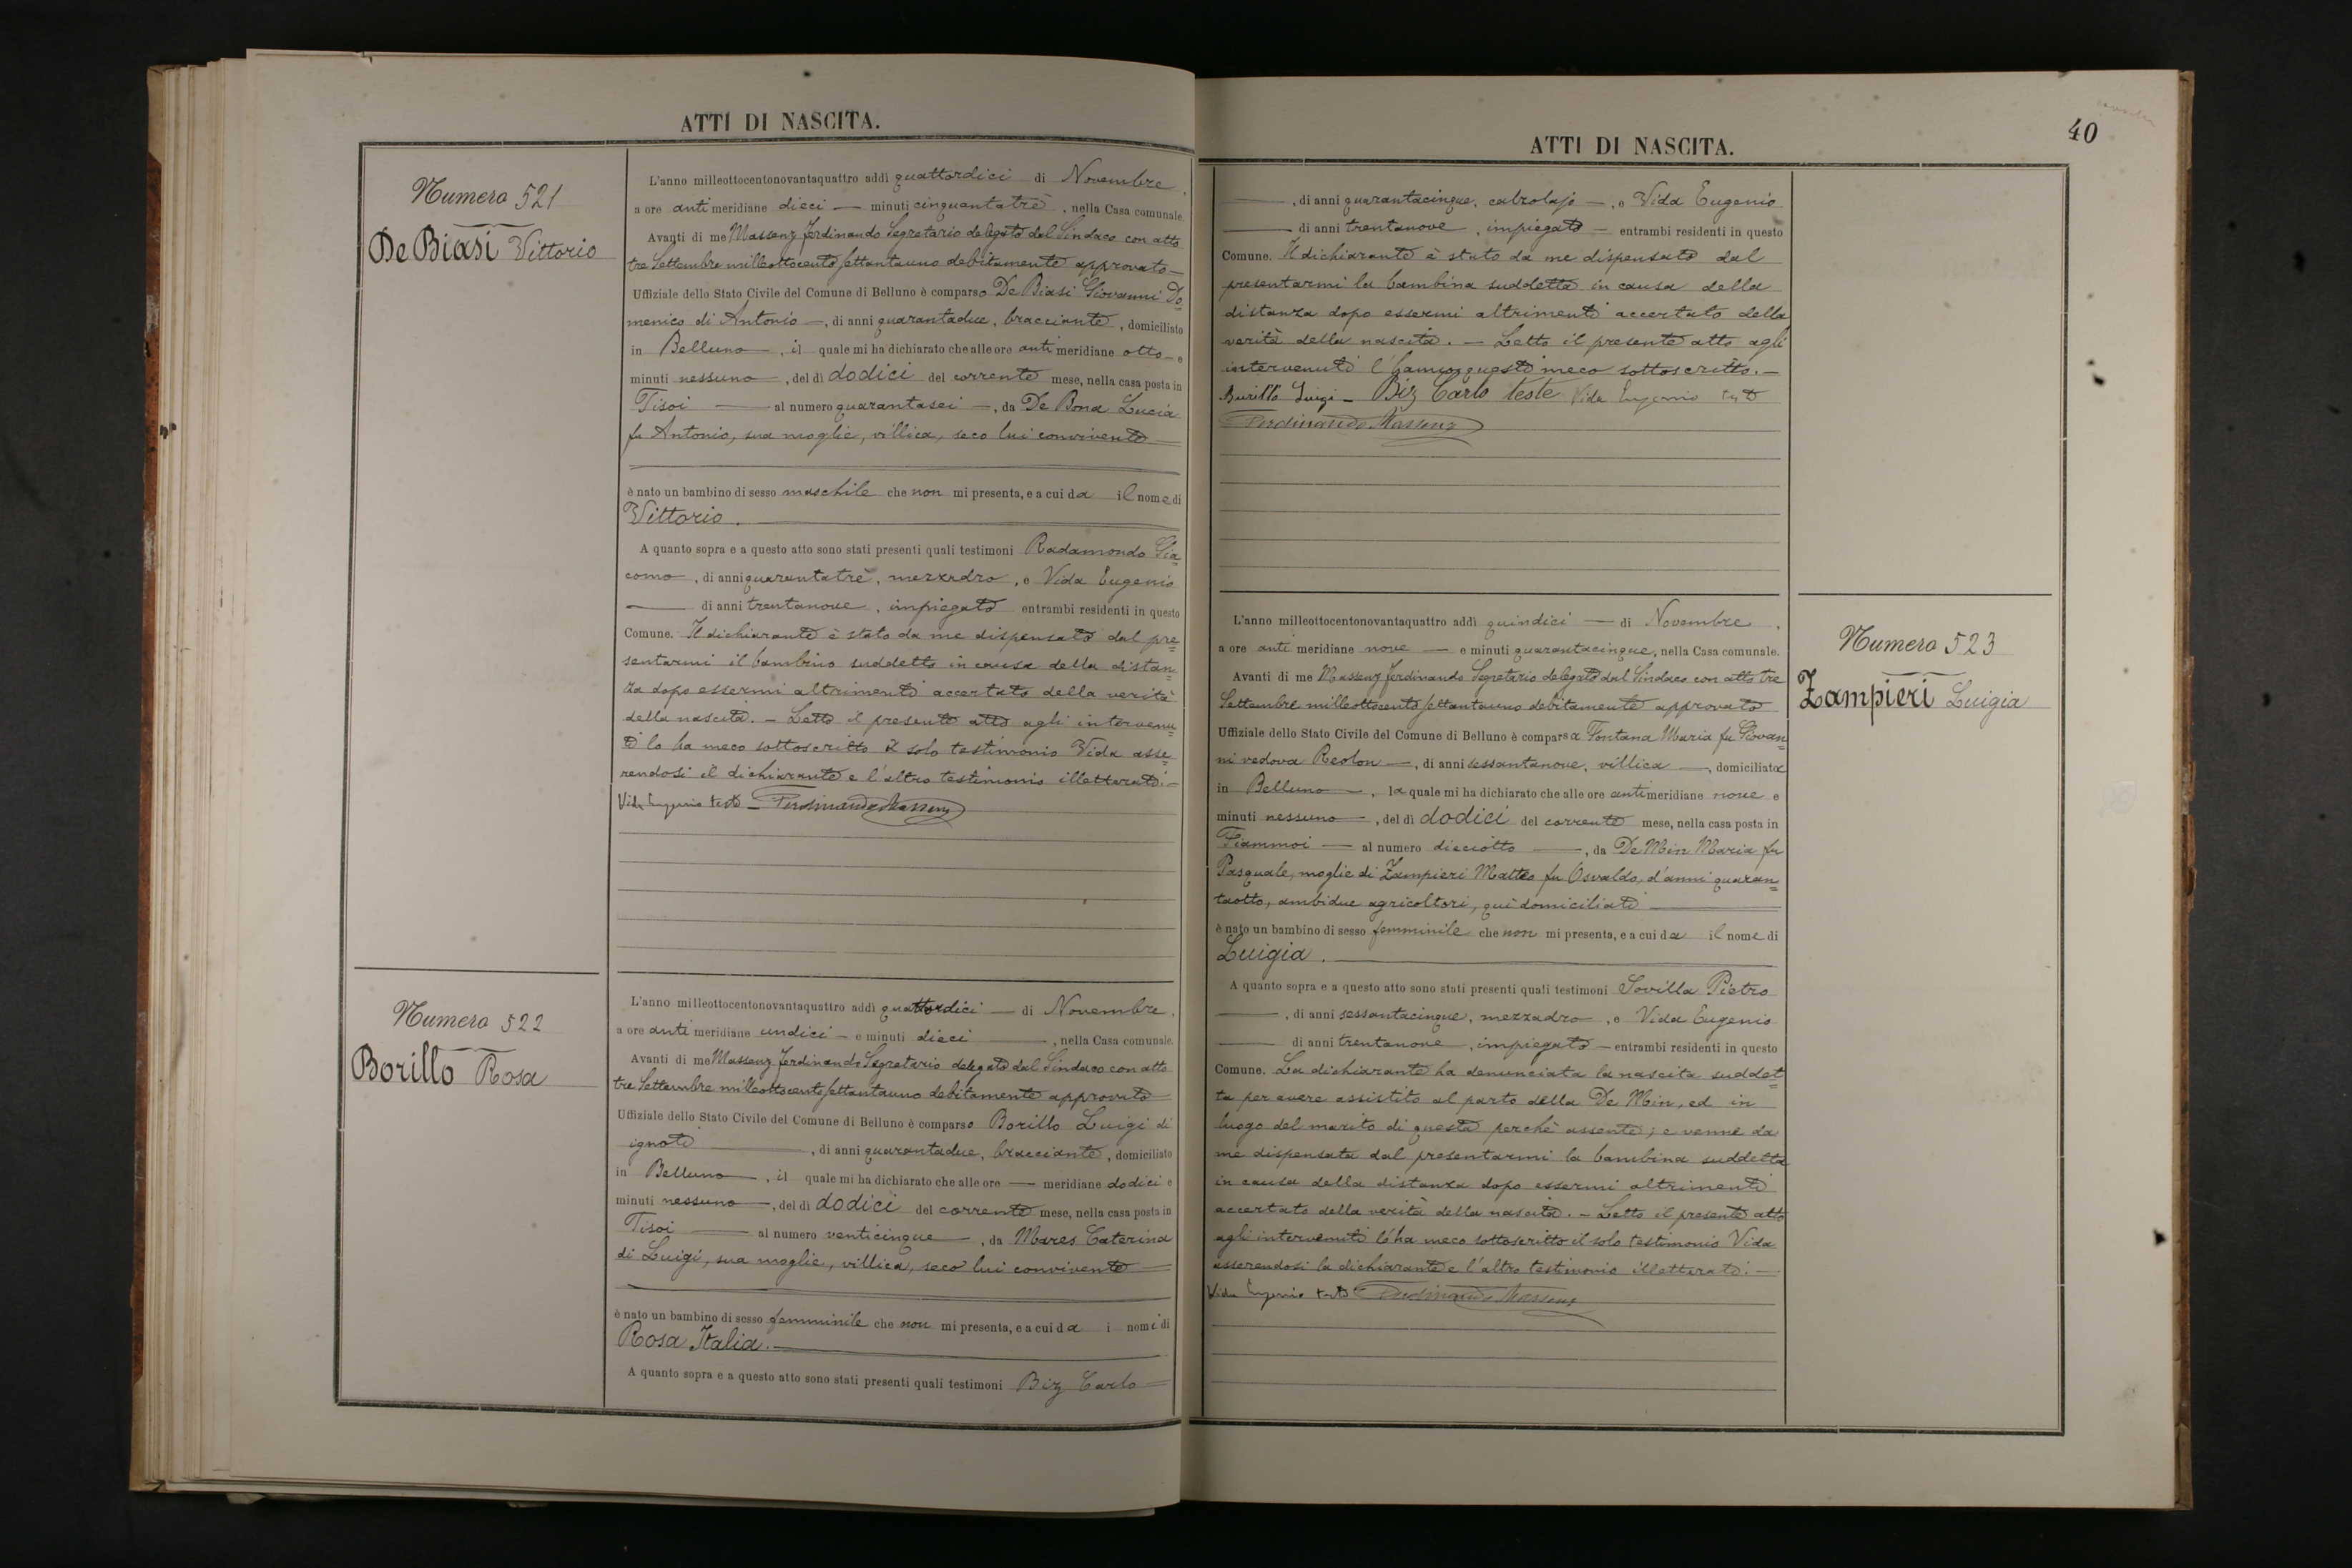 ATTI DI NASCITA.
Numero 521
De Biasi Vittorio
L'anno milleottocentonovantaquattro addì quattordici di Novembre,
a ore antimeridiane dieci — minuti cinquantatrè, nella Casa comunale.
Avanti di me Massenz Ferdinando Segretario delegato dal Sindaco con atto
tre Settembre milleottocento settantauno debitamente approvato —
Uffiziale dello Stato Civile del Comune di Belluno è comparso De Biasi Giovanni Do=
menico di Antonio —, di anni quarantadue, bracciante, domiciliato
in Belluno —, il quale mi ha dichiarato che alle ore antimeridiane otto — e
minuti nessuno —, del dì dodici del corrente mese, nella casa posta in
Tisoi — al numero quarantasei —, da De Bona Lucia
fu Antonio, sua moglie, villica, seco lui convivente —
è nato un bambino di sesso maschile che non mi presenta, e a cui da il nome di
Vittorio. —
A quanto sopra e a questo atto sono stati presenti quali testimoni Radamondo Gia=
como, di anni quarantatrè, mezzadro, e Vida Eugenio
— di anni trentanove, impiegato entrambi residenti in questo
Comune. Il dichiarante è stato da me dispensato dal pre=
sentarmi il bambino suddetto in causa della distan=
za dopo essermi altrimenti accertato della verità
della nascita. — Letto il presente atto agli intervenu=
ti lo ha meco sottoscritto il solo testimonio Vida asse=
rendosi il dichiarante e l'altro testimonio illetterati. —
Vida Eugenio teste — Ferdinando Massenz
Numero 522
Borillo Rosa
L'anno milleottocentonovantaquattro addì quattordici — di Novembre,
a ore antimeridiane undici — e minuti dieci —, nella Casa comunale.
Avanti di me Massenz Ferdinando Segretario delegato dal Sindaco con atto
tre Settembre milleottocento settantauno debitamente approvato
Uffiziale dello Stato Civile del Comune di Belluno è comparso Borillo Luigi di
ignoti —, di anni quarantadue, bracciante, domiciliato
in Belluno —, il quale mi ha dichiarato che alle ore — meridiane dodici e
minuti nessuno —, del dì dodici del corrente mese, nella casa posta in
Tisoi — al numero venticinque —, da Mares Caterina
di Luigi, sua moglie, villica, seco lui convivente —
è nato un bambino di sesso femminile che non mi presenta, e a cui da i nomi di
Rosa Italia. —
A quanto sopra e a questo atto sono stati presenti quali testimoni Biz Carlo —
ATTI DI NASCITA.
40
—, di anni quarantacinque, calzolajo —, e Vida Eugenio
— di anni trentanove, impiegato — entrambi residenti in questo
Comune. Il dichiarante è stato da me dispensato dal
presentarmi la bambina suddetta in causa della
distanza dopo essermi altrimenti accertato della
verità della nascita. — Letto il presente atto agli
intervenuti l'hanno questi meco sottoscritto. —
Burillo Luigi — Biz Carlo teste Vida Eugenio
Ferdinando Massenz
L'anno milleottocentonovantaquattro addì quindici — di Novembre,
a ore antimeridiane nove — e minuti quarantacinque, nella Casa comunale.
Avanti di me Massenz Ferdinando Segretario delegato dal Sindaco con atto tre
Settembre milleottocento settantauno debitamente approvato
Uffiziale dello Stato Civile del Comune di Belluno è comparsa Fontana Maria fu Giovan=
ni vedova Reolon —, di anni sessantanove, villica —, domiciliata
in Belluno —, la quale mi ha dichiarato che alle ore antimeridiane nove e
minuti nessuno —, del dì dodici del corrente mese, nella casa posta in
Fiammoi — al numero dieciotto —, da De Min Maria fu
Pasquale, moglie di Zampieri Matteo fu Osvaldo, d'anni quaran=
taotto, ambidue agricoltori, quì domiciliati —
è nato un bambino di sesso femminile che non mi presenta, e a cui da il nome di
Luigia. —
A quanto sopra e a questo atto sono stati presenti quali testimoni Sovilla Pietro
—, di anni sessantacinque, mezzadro, e Vida Eugenio
— di anni trentanove, impiegato — entrambi residenti in questo
Comune. La dichiarante ha denunciata la nascita suddet=
ta per avere assistito al parto della De Min, ed in
luogo del marito di questa perchè assente; e venne da
me dispensata dal presentarmi la bambina suddetta
in causa della distanza dopo essermi altrimenti
accertato della verità della nascita. — Letto il presente atto
agli intervenuti l'ha meco sottoscritto il solo testimonio Vida
asserendosi la dichiarante e l'altro testimonio illetterati. —
Vida Eugenio teste Ferdinando Massenz
Numero 523
Zampieri Luigia